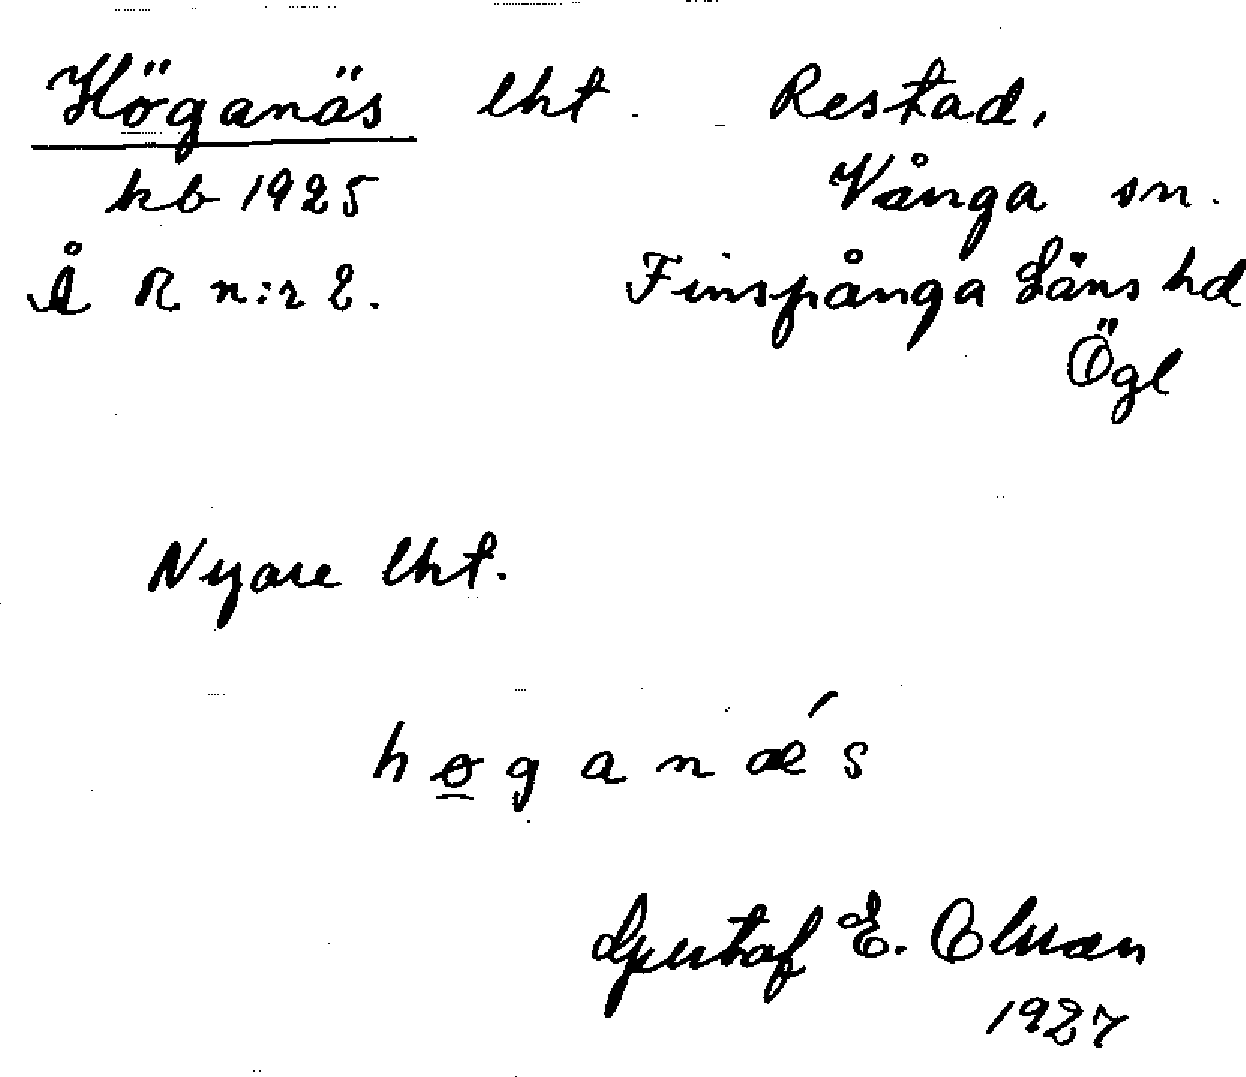 Höganäs lht. Restad,
kb 1925 Vånga sn.
Å R n:r 2. Finspånga Läns hd
Ögl
Nyare lht.
h o g a n æ ́ s
Gustaf E. Olman
1927